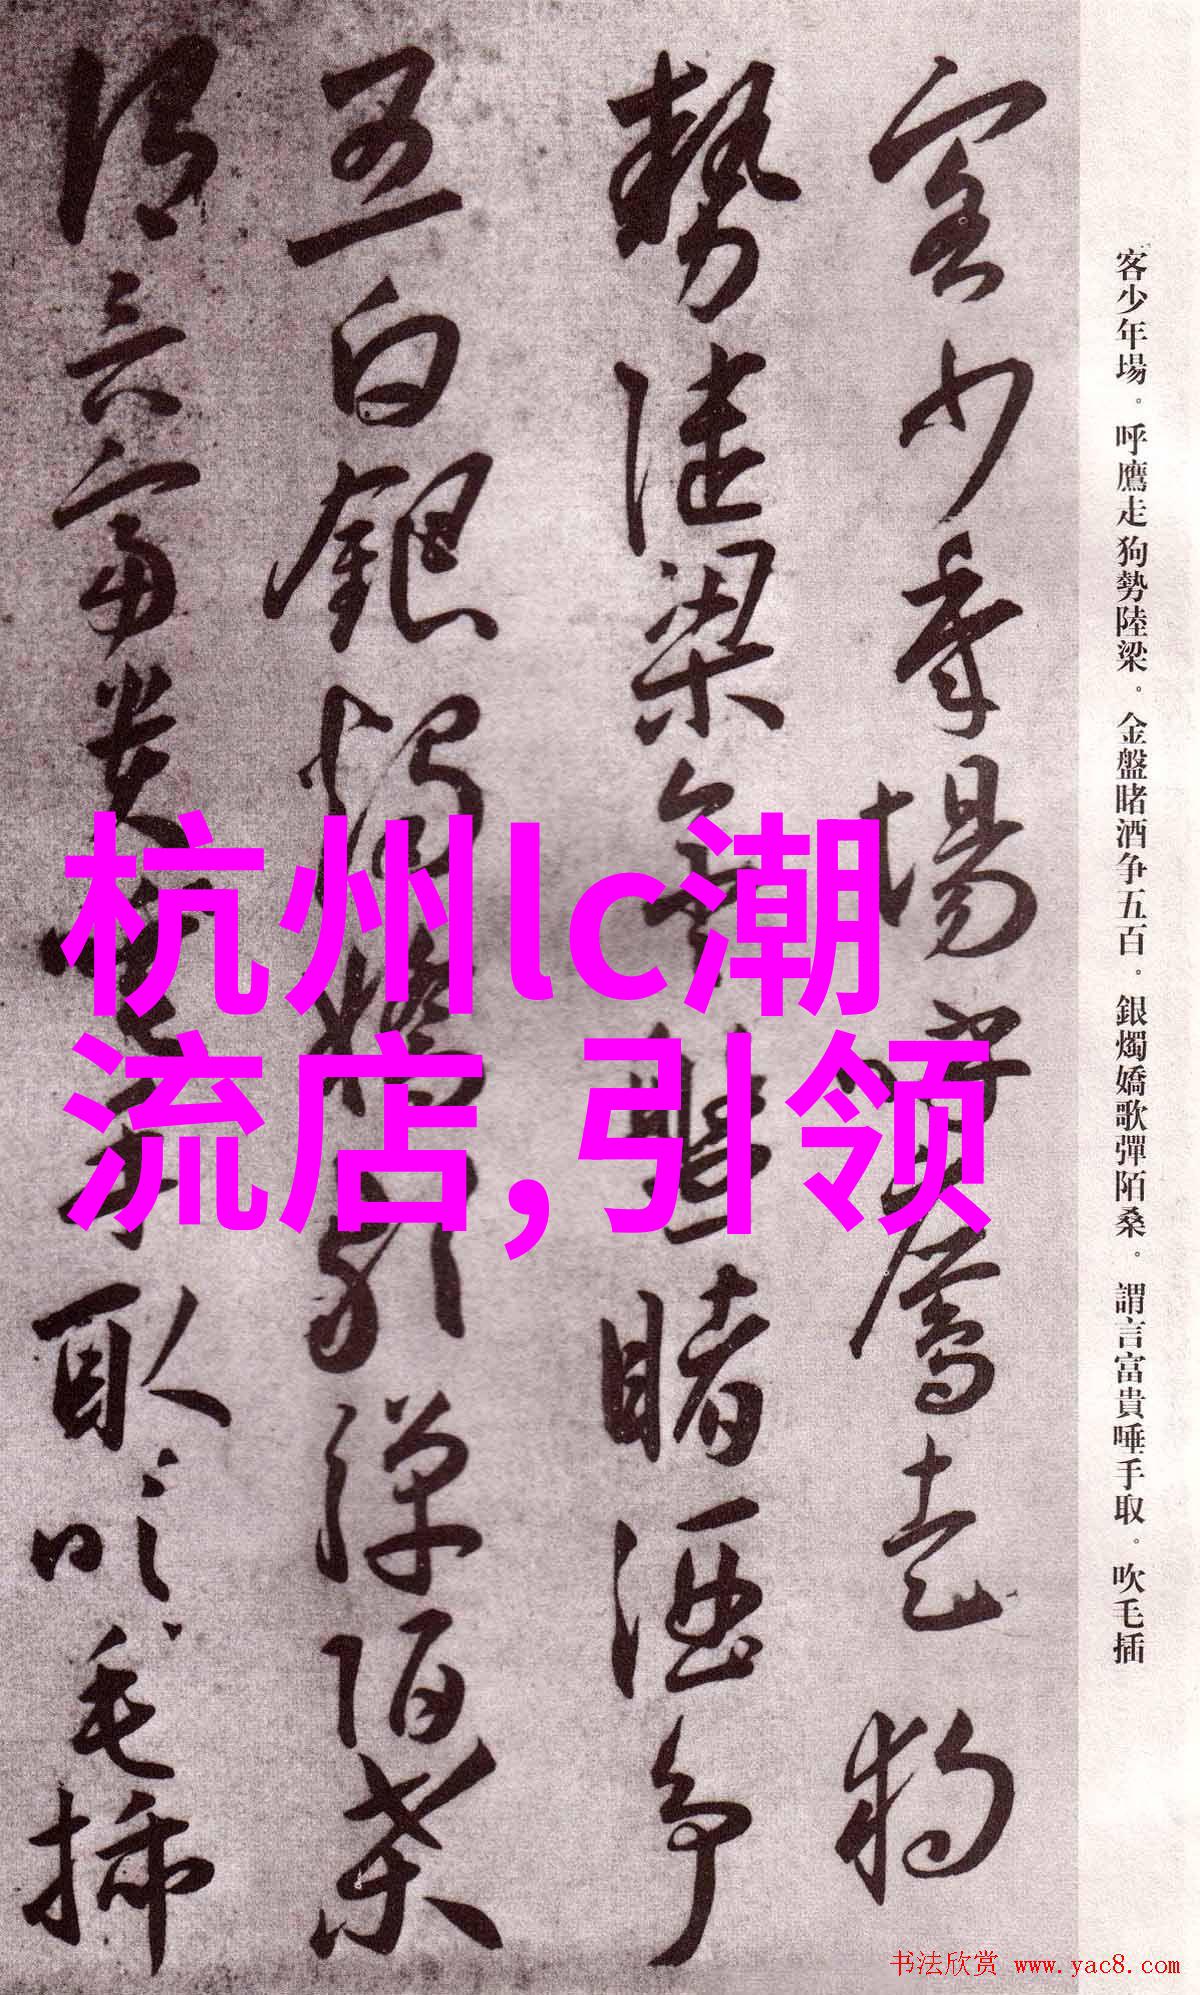 客少年場。呼鷹走狗勢陸梁。金盤睹酒争五百。銀燭嬌歌彈陌桑。謂言富貴唾手取。吹毛插
客少年場呼鷹走狗
勢陸梁金盤睹酒争
五白銀燭嬌歌彈陌桑
謂言富貴唾手取吹毛插
杭州lc潮
流店,引领
书法欣赏 www.yac8.com